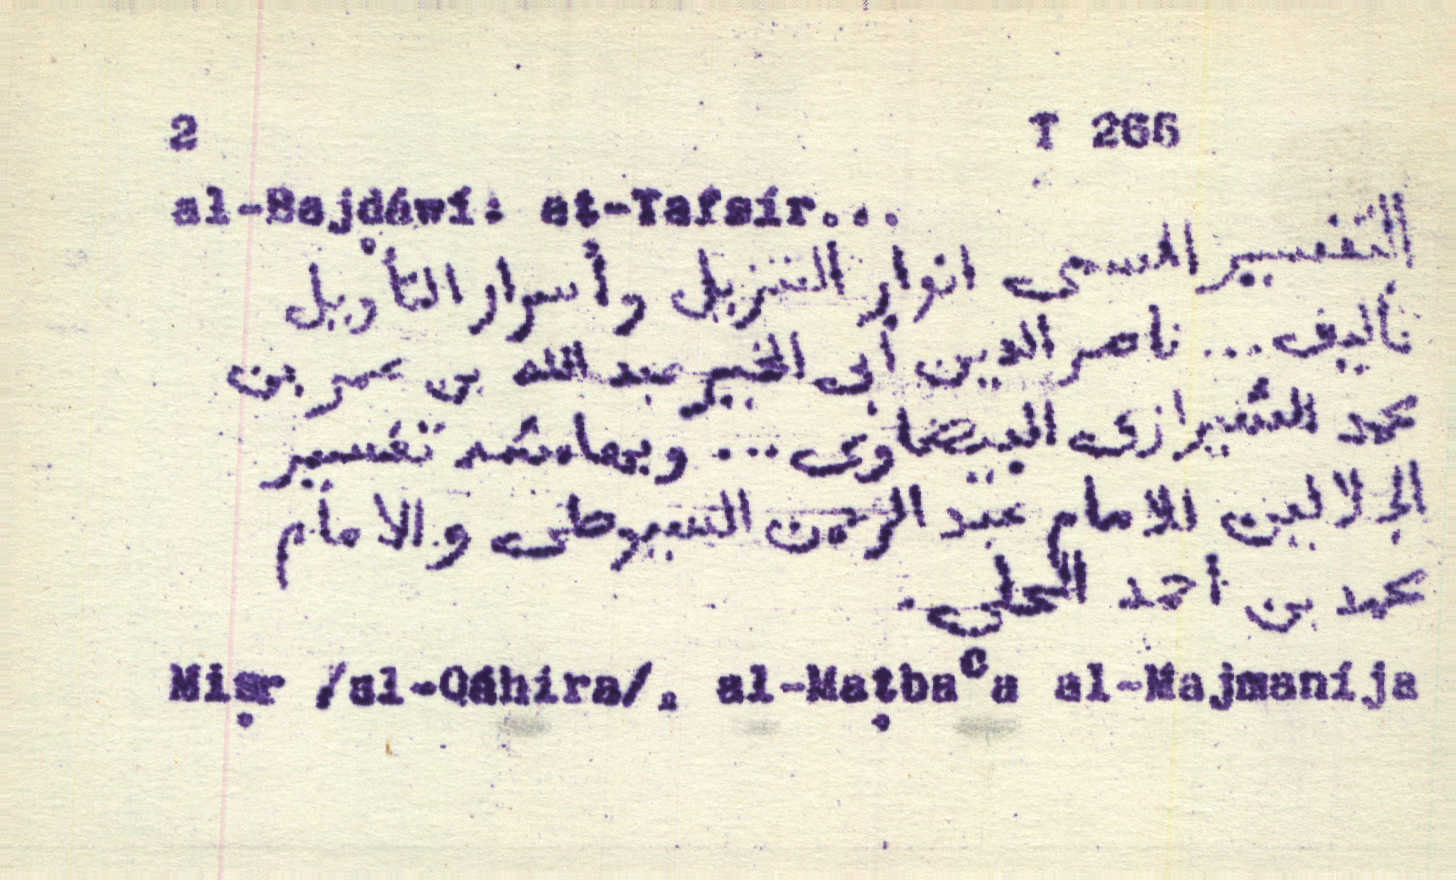 2 T 266
al-Bajḍáwí: at-Tafsír...
التفسير المسمى انوار التنزيل وأسرار التأويل
تأليف ... ناصر الدين أبى الخير عبد الله بن عمر بن
محمد الشيرازى البيضاوى ... وبهامشه تفسير
الجلالين للامام عبد الرحمن السيوطى والامام
محمد بن احمد المحلي.
Miṣr /al-Qáhira/, al-Maṭbaᶜa al-Majmaníja